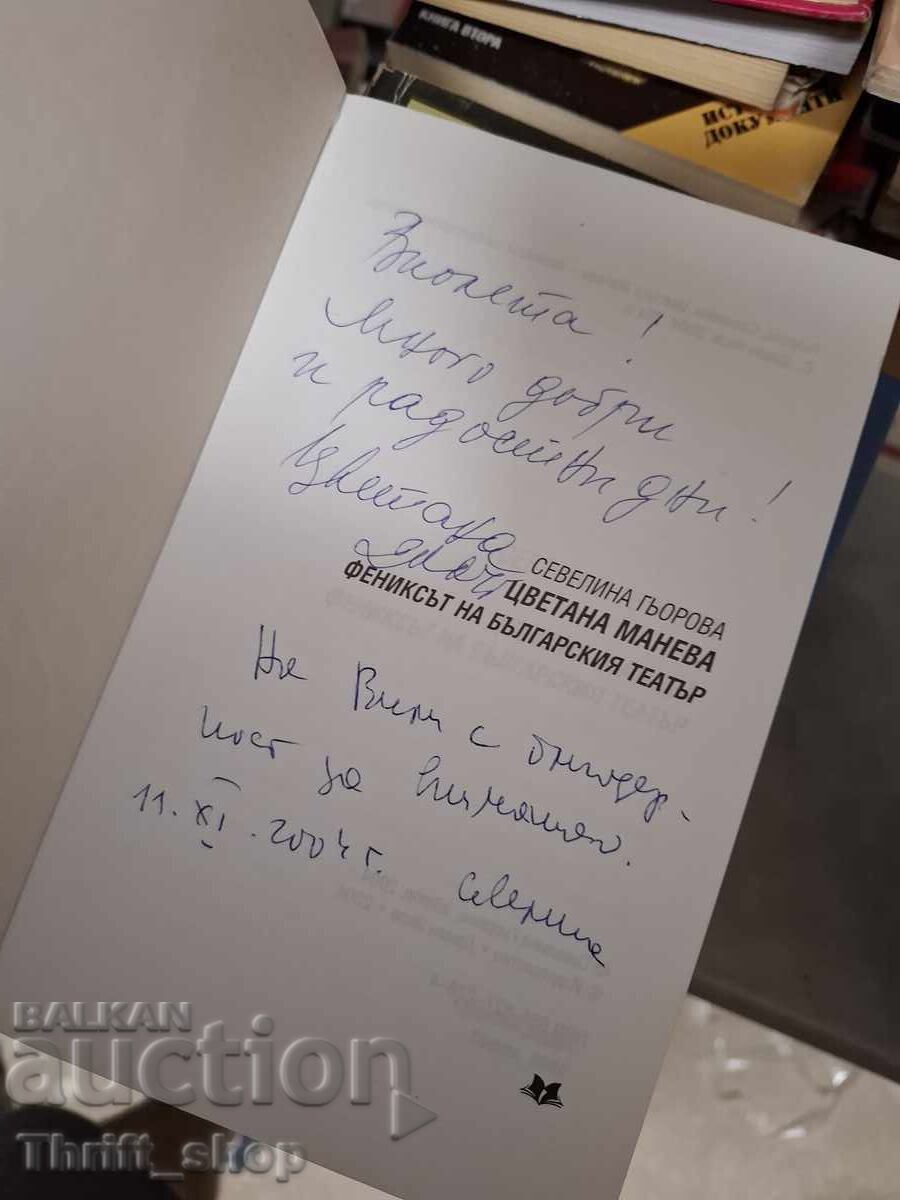 КНИГА ВТОРА
ИСТ
ДОКУМЕНТИ
Виолета!
Много добри
и радостни дни!
Цветана
СЕВЕЛИНА ГЬОРОВА
ЦВЕТАНА МАНЕВА
ФЕНИКСЪТ НА БЪЛГАРСКИЯ ТЕАТЪР
На Вили с благодар-
ност за вниманието.
11.XI.2004 г. Севелина
BALKAN
auction
Thrift_shop